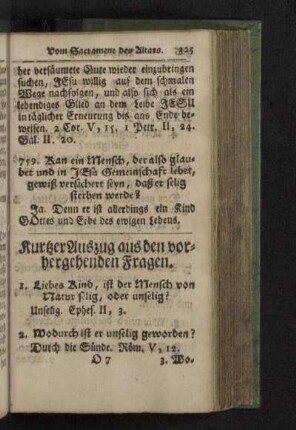 Vom Sacrament des Altars. 325
her versäumete Gute wieder einzubringen
suchen, JEsu willig auf dem schmalen
Wege nachfolgen, und also sich als ein
lebendiges Glied an dem Leibe JESU
in täglicher Erneurung bis ans Ende be-
weisen. 2 Cor. V, 15. 1 Petr. II, 24.
Gal. II. 20.
719. Kan ein Mensch, der also glau-
bet und in JEsu Gemeinschaft lebet,
gewiß versichert seyn, daß er selig
sterben werde?
Ja. Denn er ist allerdings ein Kind
GOttes und Erbe des ewigen Lebens.
Kurtzer Auszug aus den vor-
hergehenden Fragen.
1. Liebes Kind, ist der Mensch von
Natur selig, oder unselig?
Unselig. Ephes. II, 3.
2. Wodurch ist er unselig geworden?
Durch die Sünde. Röm. V, 12.
O 7 3. Wo-